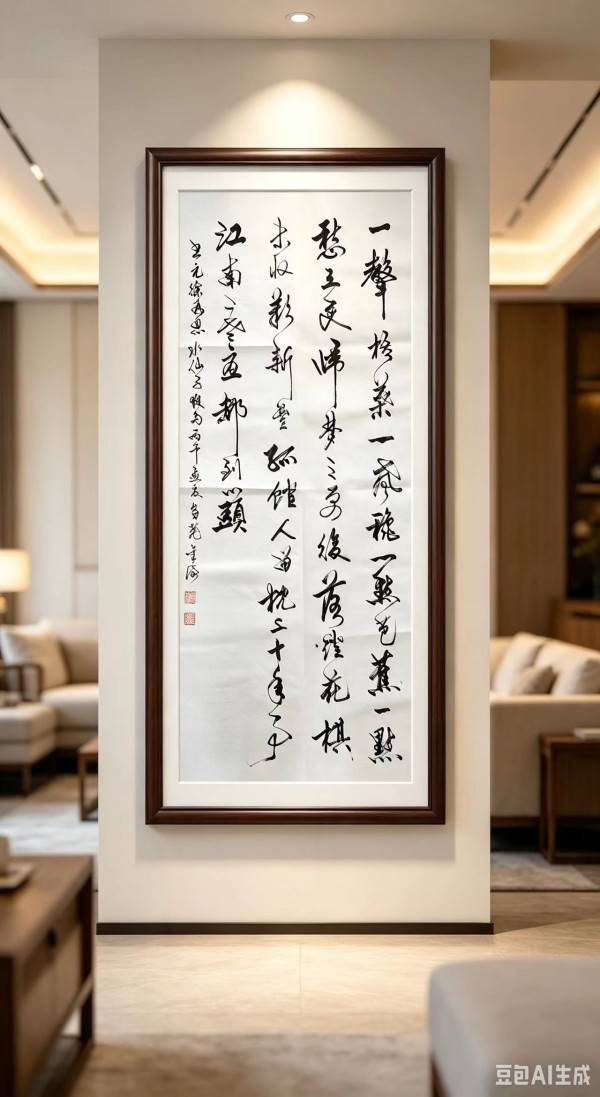 一聲梧葉一聲秋一點芭蕉一點
愁三更歸夢三更後落燈花棋
未收歎新豐孤館人留枕上十年事
江南二老憂都到心頭
书元徐再思水仙子夜雨丙午孟夏
豆包AI生成